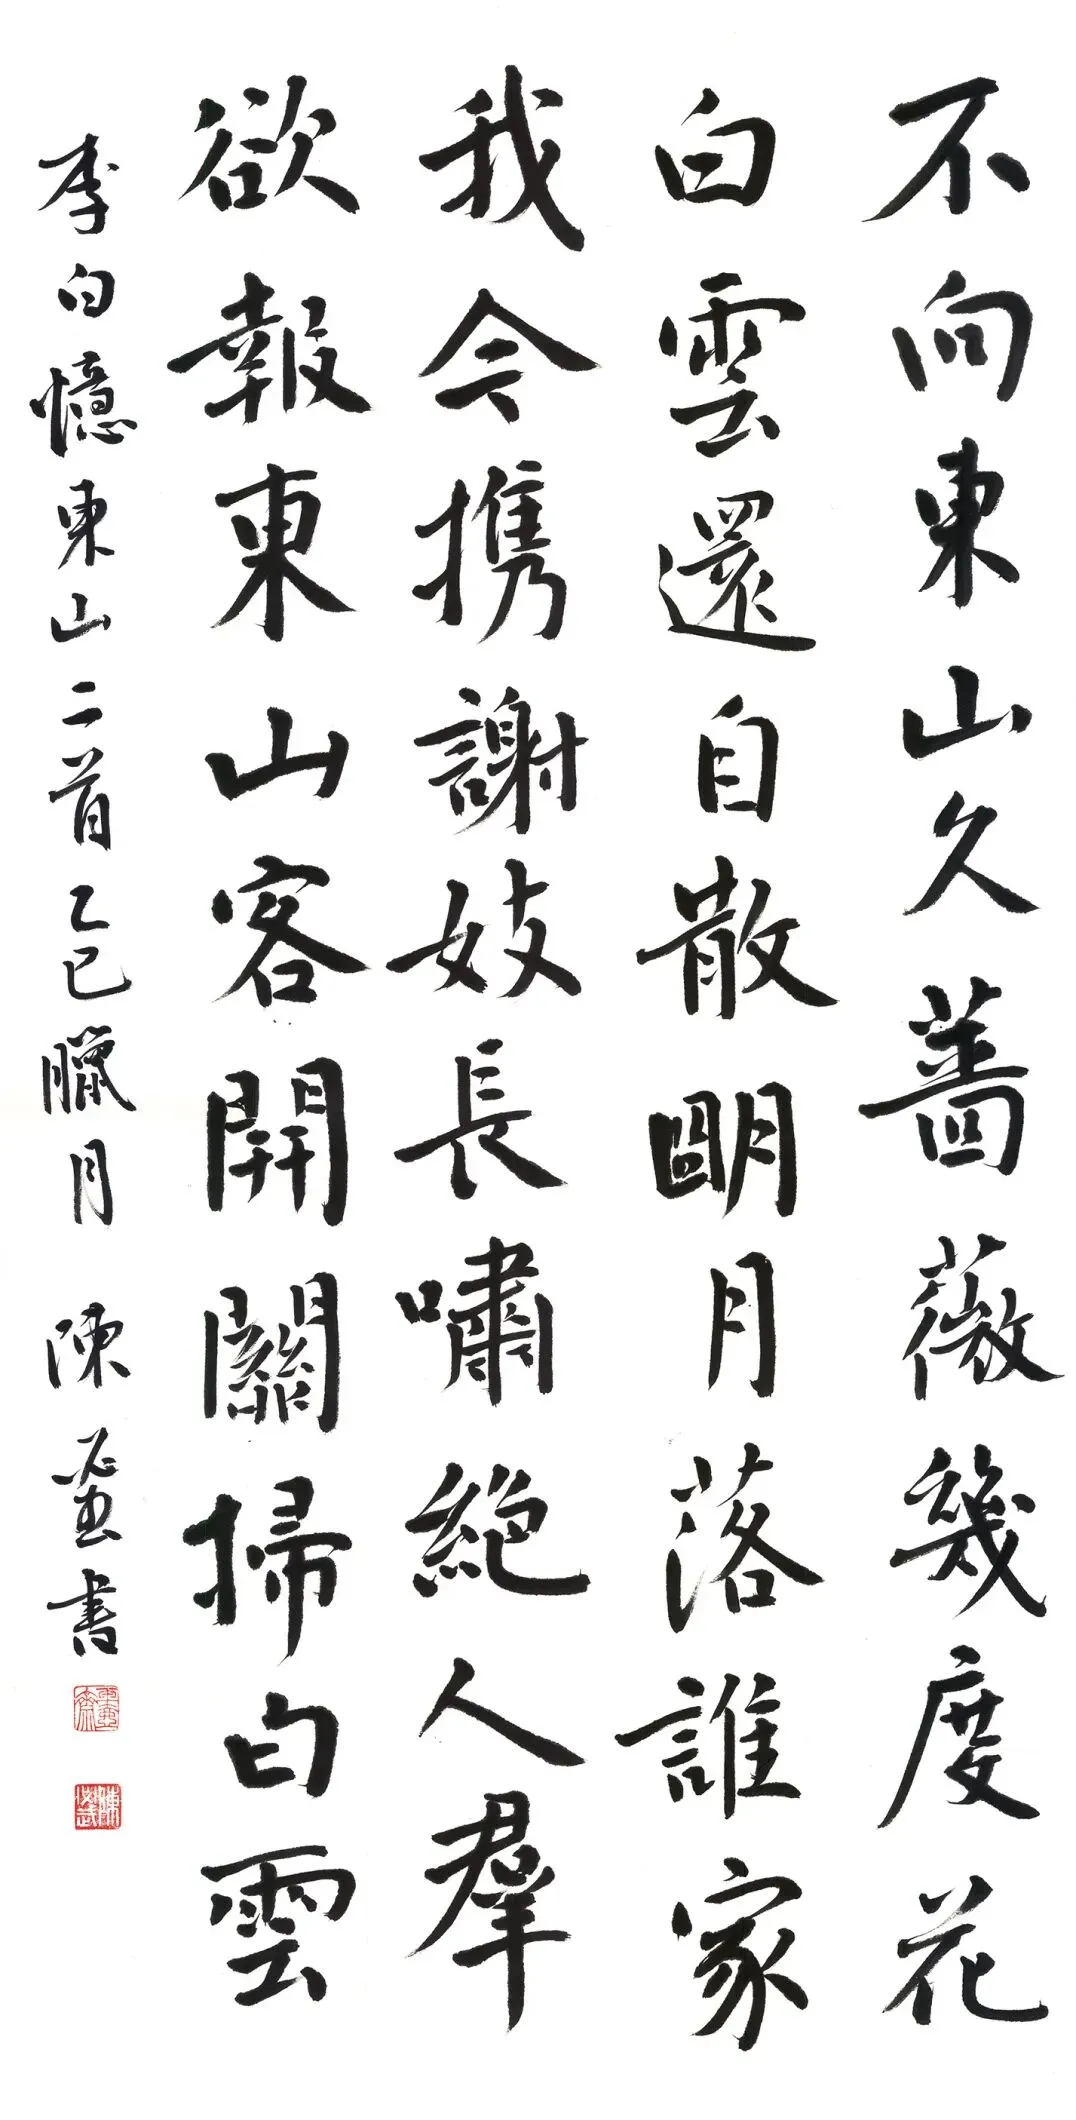 不向東山久薔薇幾度花
白雲還自散明月落誰家
我今携謝妓長嘯絕人群
欲報東山客開關掃白雲
李白憶東山二首乙巳臘月 陳 書